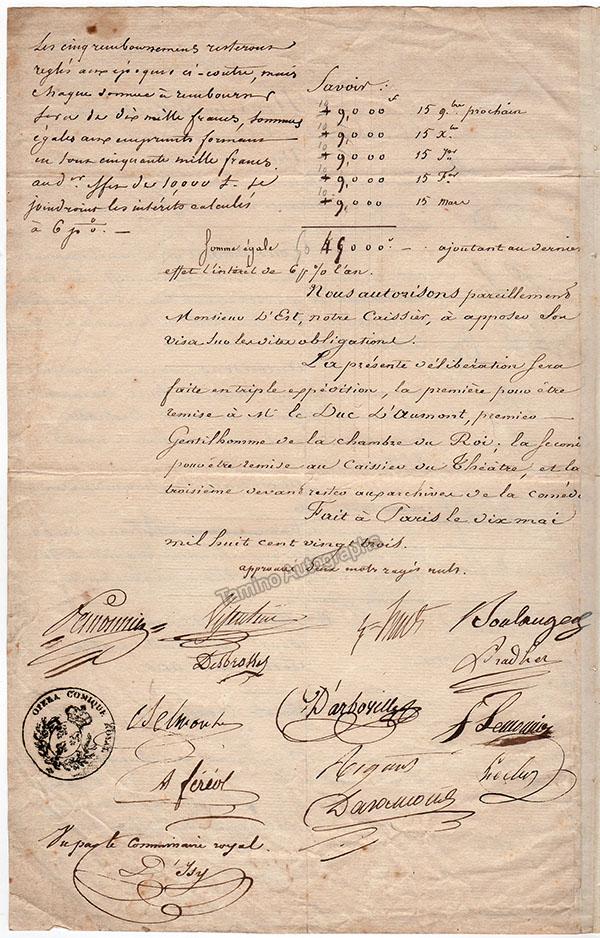 Les cinq remboursemens resteront
reglés aux époques ci-contre, mais
chaque somme à rembourser
sera de dix mille francs, sommes
égales aux emprunts formant
en tout cinquante mille francs.
aud. effet de 10,000 f. se
joindront les intérêts calculés
à 6 p%. —
Savoir:
10 9,000 f 15 9bre prochain
10 9,000 15 Xbre
10 9,000 15 Jer
10 9,000 15 Fer
10 9,000 15 mars
Somme égale 50 45,000 f — ajoutant au dernier
effet l'intérêt de 6 p% l'an.
Nous autorisons pareillement
Monsieur D'Est, notre Caissier, à apposer son
visa sur les dites obligations.
La présente délibération sera
faite en triple expédition, la première pour être
remise à Mr le Duc D'Aumont, premier —
Gentilhomme de la chambre du Roi; la second
pour être remise au Caissier du Théâtre, et la
troisième devant rester aux archives de la comédie
Fait à Paris le dix mai
mil huit cent vingt trois.
approuvé deux mots rayés nuls.
Tamino Autographs
Lemonnier Vizentini Huet Boulanger
Desbrosses Pradher
OPERA COMIQUE ROYAL
Belmont D'arboville F Lemonnier
A féréol Rigaut Ponchard
Darancourt
Vu par le Commissaire royal.
D'Isy